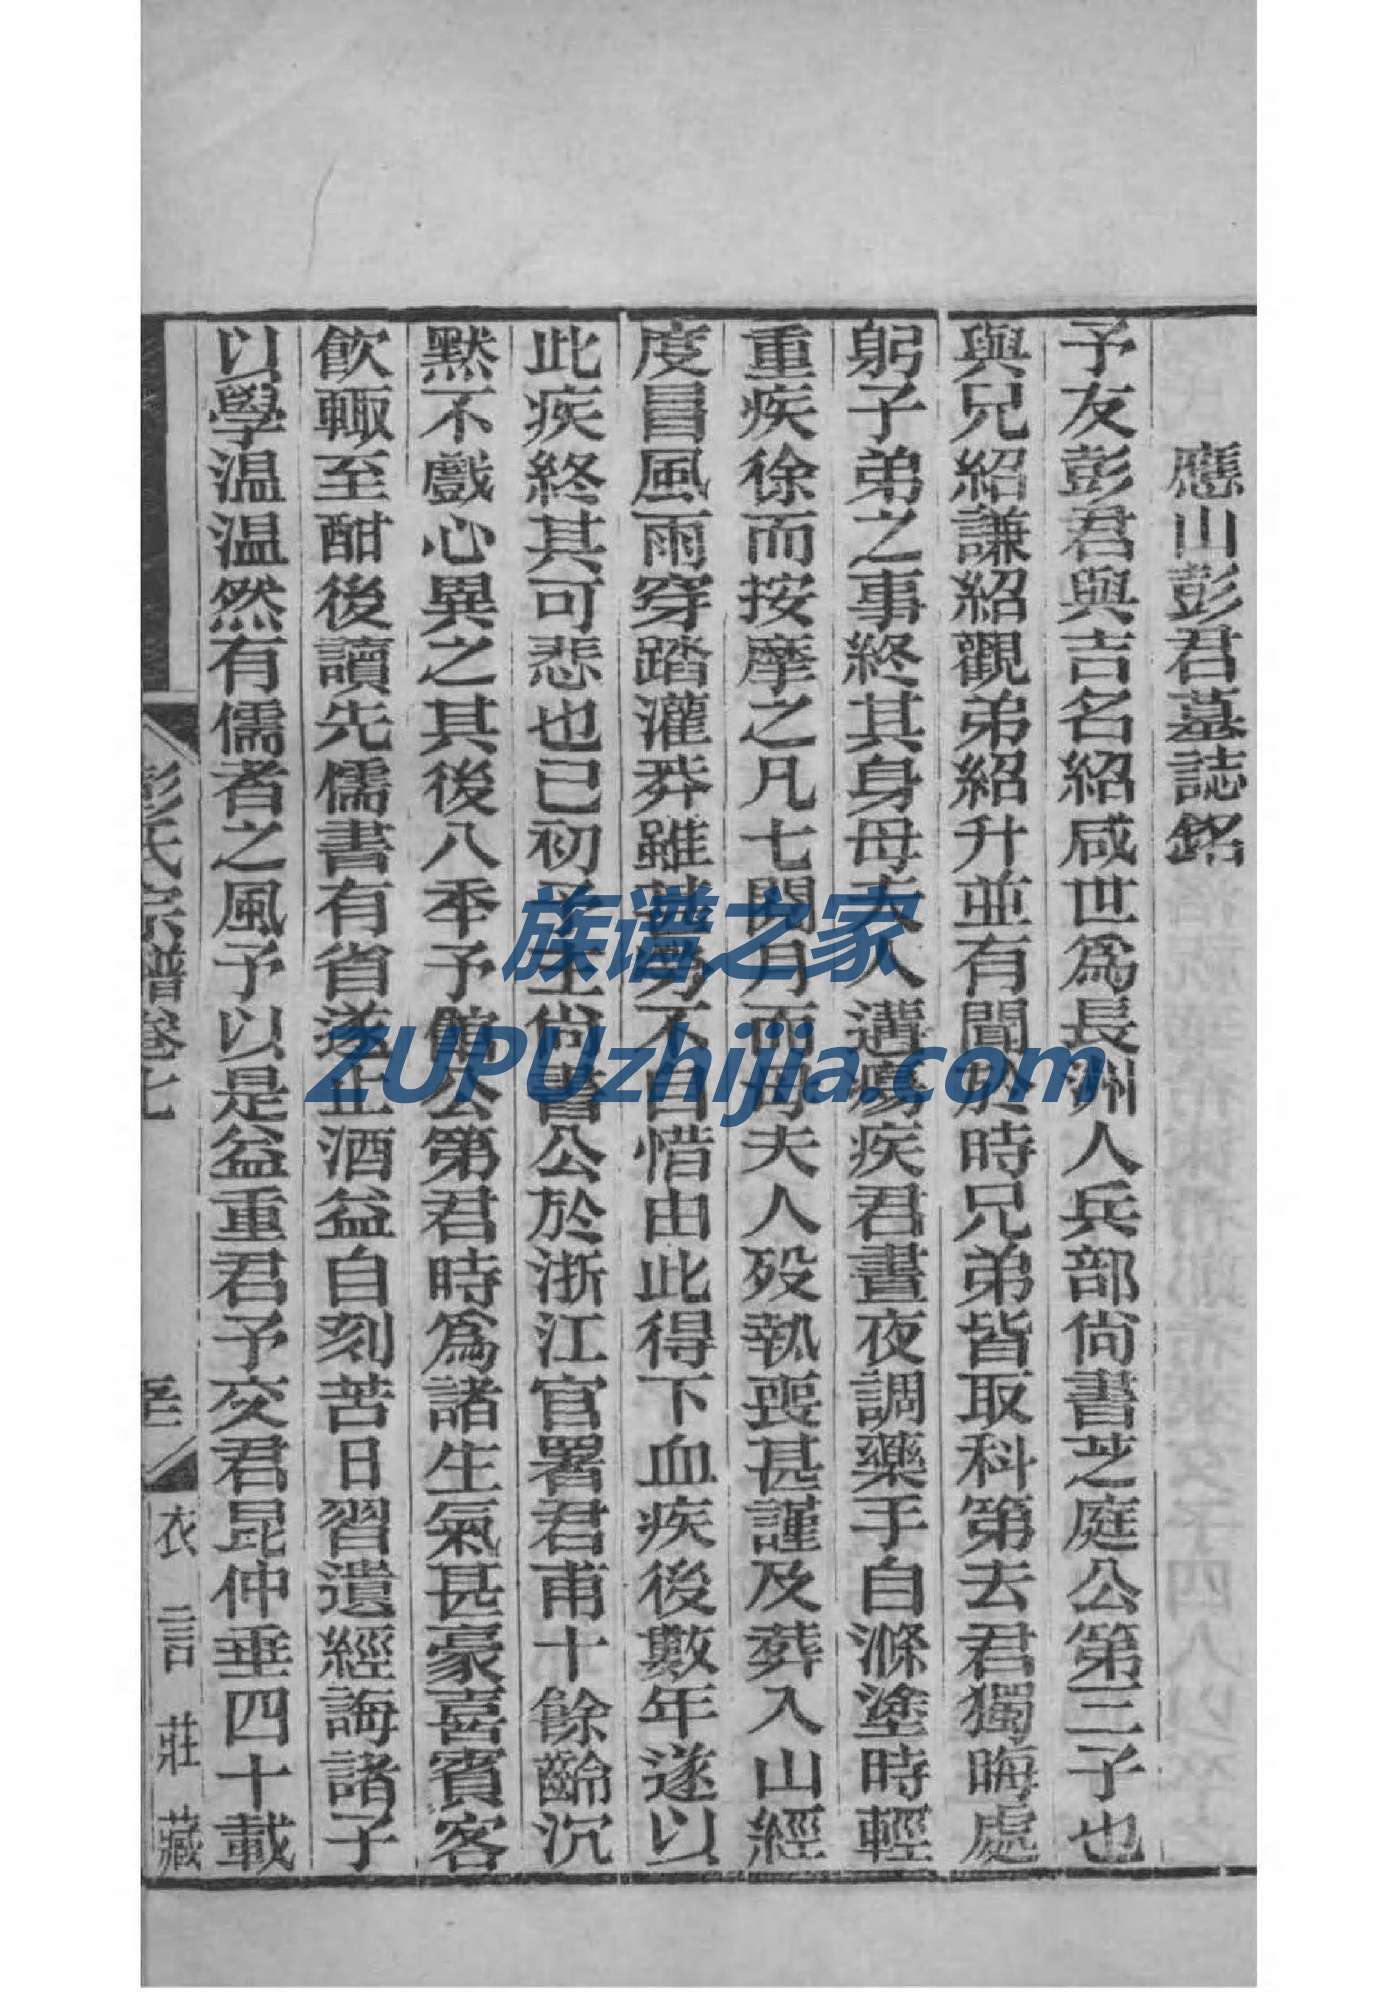 應山彭君墓誌銘
予友彭君與吉名紹咸世爲長洲人兵部尙書芝庭公第三子也
與兄紹謙紹觀弟紹升並有聞於時兄弟皆取科第去君獨晦處
躬子弟之事終其身母夫人遘瘍疾君晝夜調藥手自滌塗時輕
重疾徐而按摩之凡七閱月而母夫人歿執喪甚謹及葬入山經
度冒風雨穿踏灌莽雖甚勞不自惜由此得下血疾後數年遂以
此疾終其可悲也已初予主尙書公於浙江官署君甫十餘齡沉
黙不戲心異之其後八年予館公第君時爲諸生氣甚豪喜賓客
飮輒至酣後讀先儒書有省遂止酒益自刻苦日習遺經誨諸子
以學温温然有儒者之風予以是益重君予交君昆仲垂四十載
彭氏宗譜卷七
衣言莊藏
族谱之家
ZUPUzhijia.com